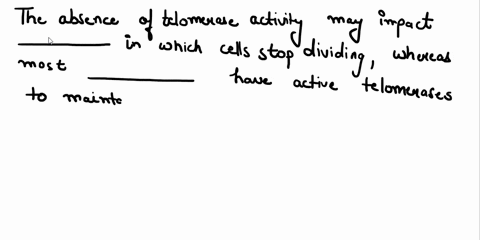 The absence of telomerase activity may impact
__________ in which cells stop dividing, whereas
most __________ have active telomerases
to mainte